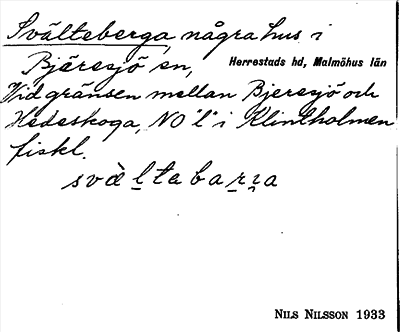 Svälteberga, några hus i
Bjäresjö sn, Herrestads hd, Malmöhus län
Vid gränsen mellan Bjeresjö och
Hedeskoga, NO "l" i Klintholmen
fiskl.
svàḻtabaṟɪ̯a
NILS NILSSON 1933